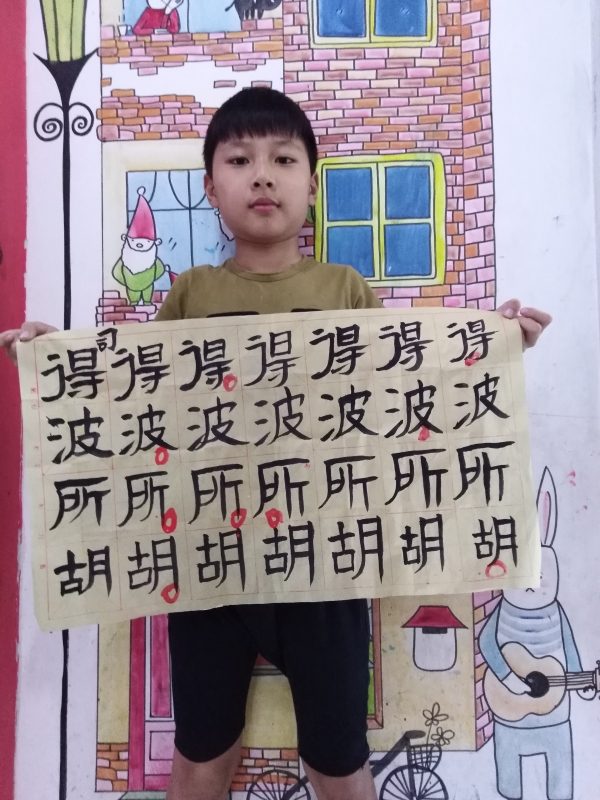 司
得得得得得得得
波波波波波波波
所所所所所所所
胡胡胡胡胡胡胡